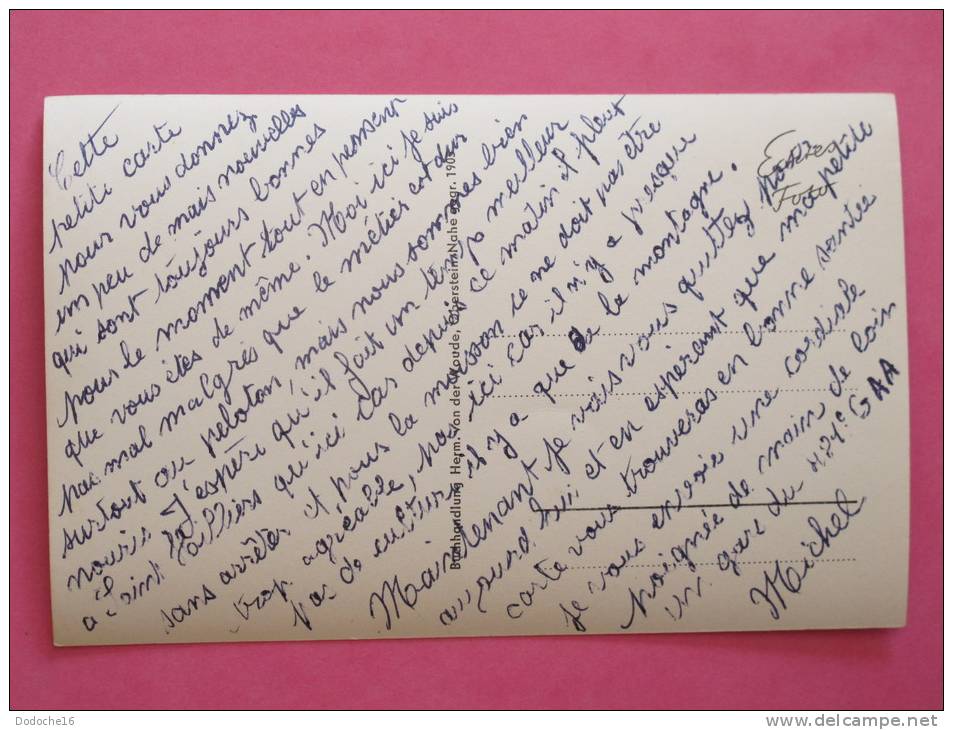 Cette
petite carte
pour vous donnez
un peu de mais nouvelles
qui sont toujours bonnes
pour le moment tout en pensent
que vous êtes de même. Moi ici je suis
pas mal malgrés que le métier est dur
surtout au peloton, mais nous sommes bien
nouris J'espère qu'il fait un temp meilleur
a Saint qu'ici car depuis ce matin il pleut
sans arrêter et pour la moison ce ne doit pas être
trop agréable, pas ici car il n'y a presque
pas de culture il y a que de la montagne.
Maintenant je vais vous quittez pour
aujourd hui et en espérant que ma petite
carte vous trouveras en bonne santée
je vous envoie une cordiale
poignée de main de loin
un gars du 421e GAA
Michel
Buchhandlung Herm. von der Woude, Oberstein/Nahe gegr. 1905
Dodoche16
www.delcampe.net